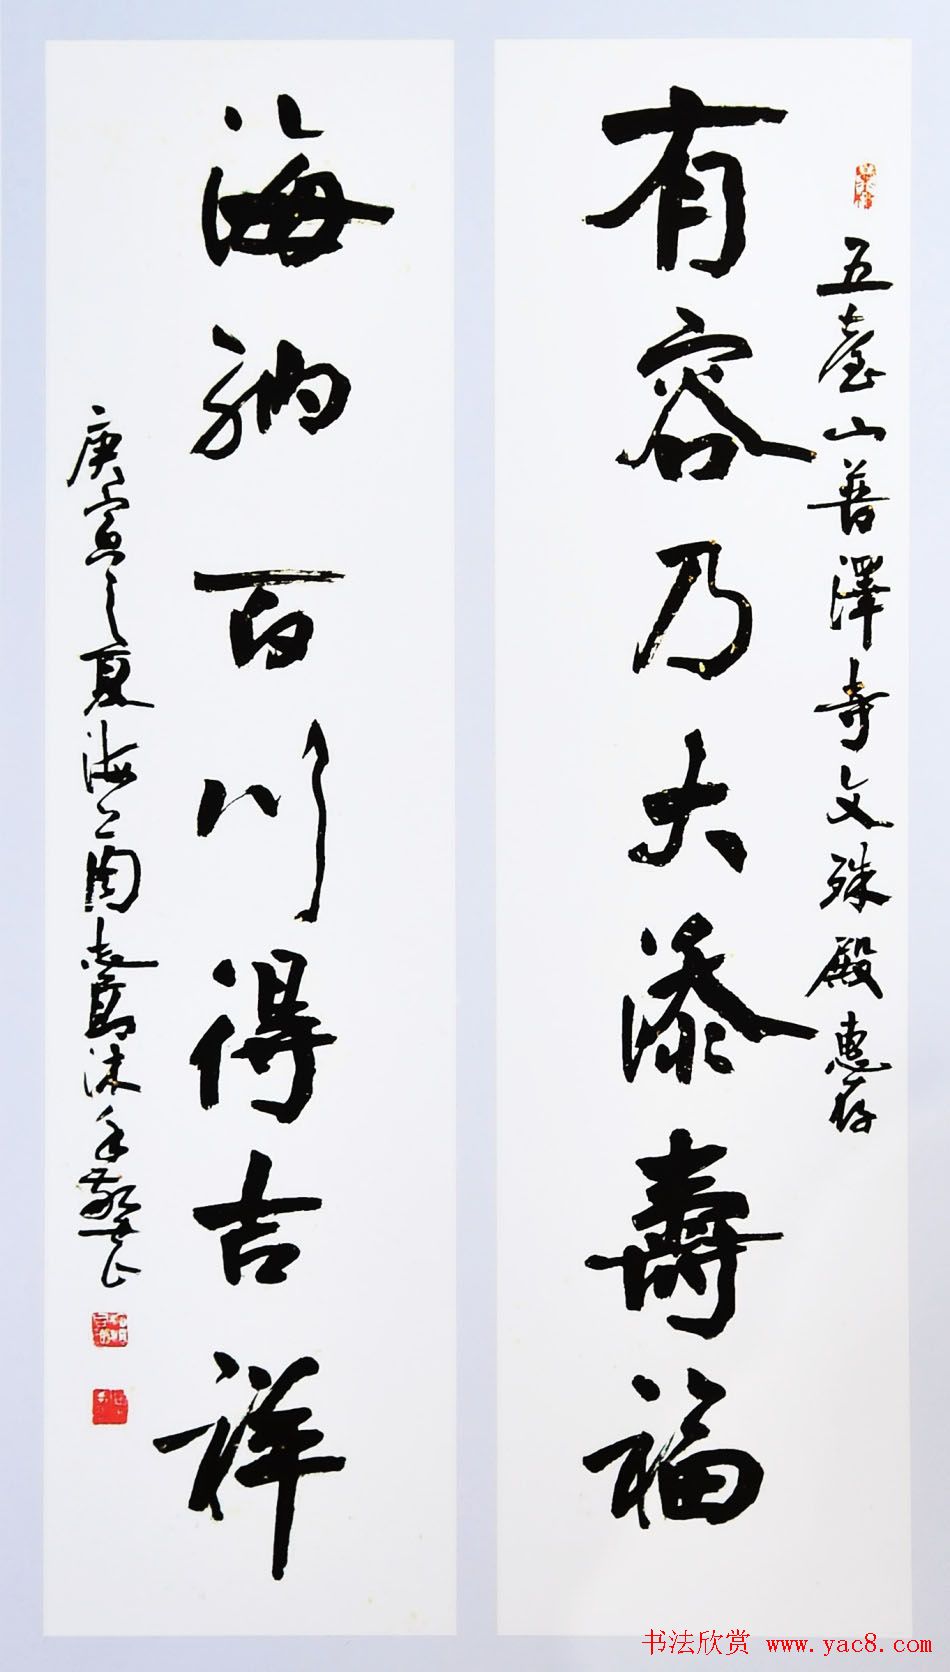 五臺山普澤寺文殊殿惠存
有容乃大添壽福
海納百川得吉祥
庚寅之夏海上周志高沐手敬書
书法欣赏 www.yac8.com